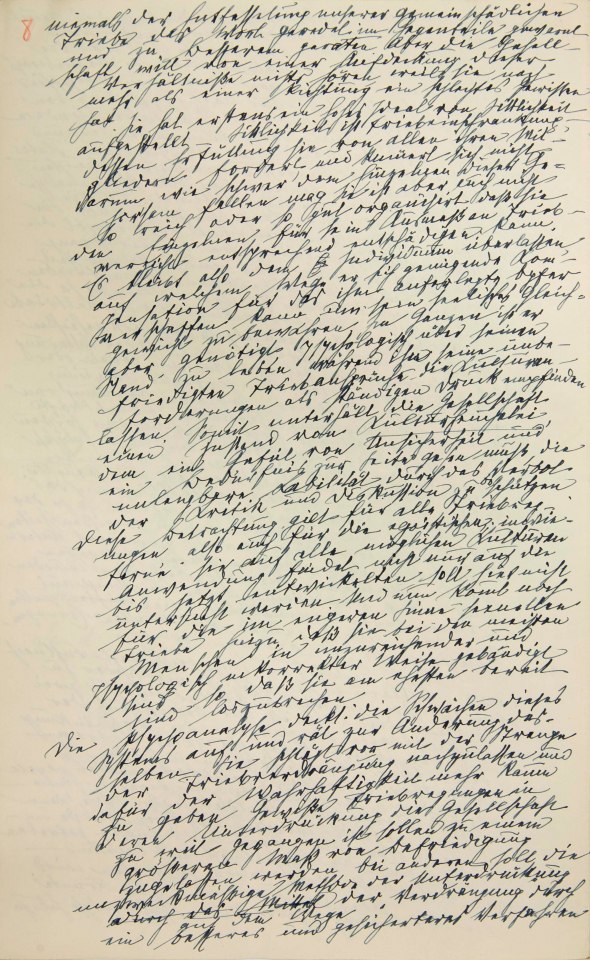 8 niemals der Entfesselung unserer gemeinschädlichen
Triebe das Wort geredet im Gegenteile gewarnt
und zu Besserem geraten Aber die Gesell-
schaft will von einer Aufdeckung dieser
Verhältnisse nichts hören weil sie nach
mehr als einer Richtung ein schlechtes Gewissen
hat sie hat erstens ein hohes Ideal von Sittlichkeit
aufgestellt Sittlichkeit ist Triebeinschränkung
dessen Erfüllung sie von allen ihren Mit-
gliedern fordert und kümmert sich nicht
darum wie schwer dem Einzelnen dieser Ge-
horsam fallen mag sie ist aber auch nicht
so reich oder so gut organisirt daß sie
den Einzelnen für sein Ausmaß an Trieb-
verzicht entsprechend entschädigen kann.
Es bleibt also dem Individuum überlassen
auf welchem Wege er sich genügende Kom-
pensation für das ihm auferlegte Opfer
verschaffen kann um sein seelisches Gleich-
gewicht zu bewahren Im Ganzen ist er
aber genötigt psychologisch über seinen
Stand zu leben während ihn seine unbe-
friedigten Triebansprüche die Culturan-
forderungen als ständigen Druck empfinden
lassen. Somit unterhält die Gesellschaft
einen Zustand von Culturheuchelei
dem ein Gefühl von Unsicherheit und
ein Bedürfnis zur Seite gehen muß die
unleugbare Labilität durch das Verbot
der Kritik und Diskussion zu beschützen
Diese Betrachtung gilt für alle Triebreg-
ungen also auch für die egoistischen; inwie-
ferne sie auf alle möglichen Culturen
Anwendung findet nicht nur auf die
bis jetzt entwickelten soll hier nicht
untersucht werden Und nun komt noch
für die im engeren Sinne sexuellen
Triebe hinzu daß sie bei den meisten
Menschen in unzureichender und
psychologisch inkorrekter Weise gebändigt
sind so daß sie am ehesten bereit
sind loszubrechen
Die Psychoanalyse deckt die Schwächen dieses
Systems auf und rät zur Änderung des-
selben Sie schlägt vor mit der Strenge
der Triebverdrängung nachzulassen und
dafür der Wahrhaftigkeit mehr Raum
zu geben Gewisse Triebregungen in
deren Unterdrückung die Gesellschaft
zu weit gegangen ist sollen zu einem
größeren Maß von Befriedigung
zugelassen werden bei anderen soll die
unzweckmäßige Methode der Unterdrückung
durch das Mittel der Verdrängung durch
auf dem Wege
ein besseres und gesicherteres Verfahren